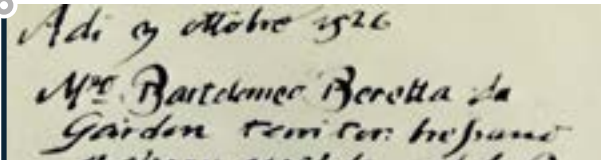 Adi 3 ottobre 1526
Mro Bartolomeo Beretta da
Gardon territor: bresano